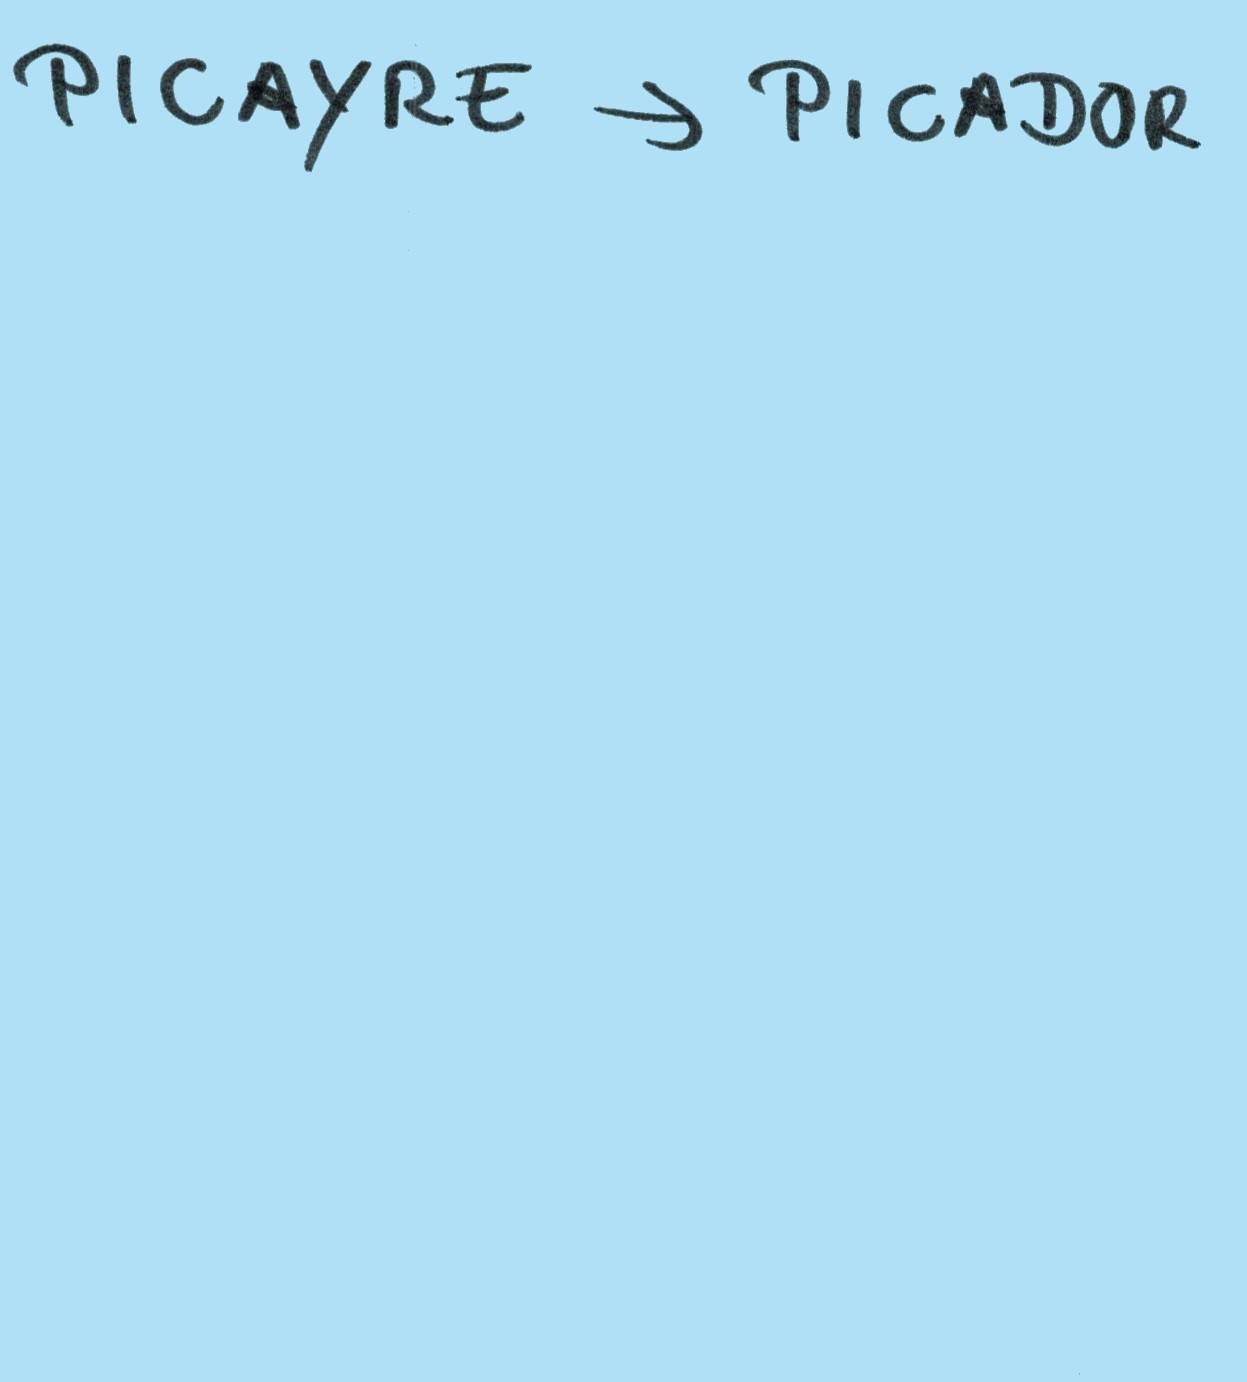 PICAYRE → PICADOR